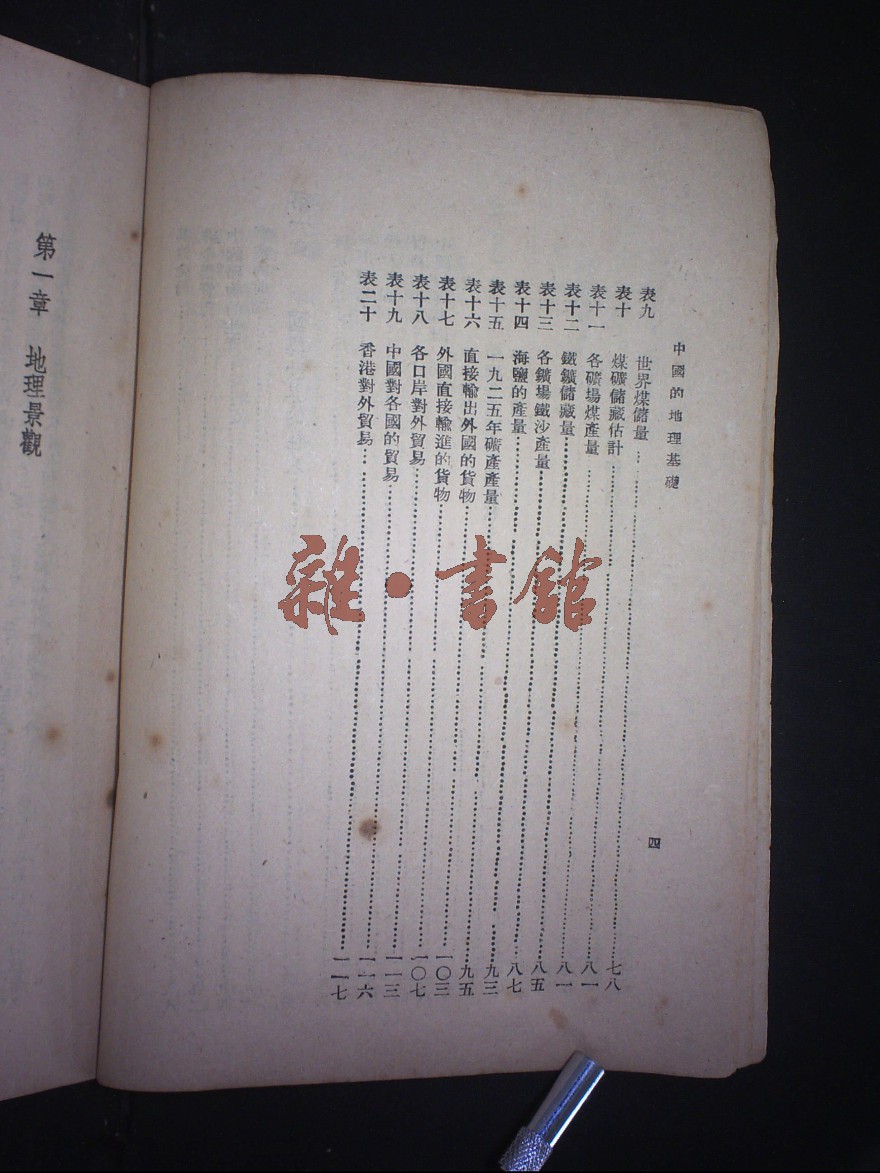 中國的地理基礎
四
表九 世界煤儲量……七八
表十 煤礦儲藏估計……八一
表十一 各礦場煤產量……八一
表十二 鐵鑛儲藏量……八五
表十三 各鑛場鐵沙產量……八七
表十四 海鹽的產量……九三
表十五 一九二五年礦產產量……九五
表十六 直接輸出外國的貨物……一〇三
表十七 外國直接輸進的貨物……一〇七
表十八 各口岸對外貿易……一一三
表十九 中國對各國的貿易……一一六
表二十 香港對外貿易……一一七
第一章 地理景觀
雜·書館